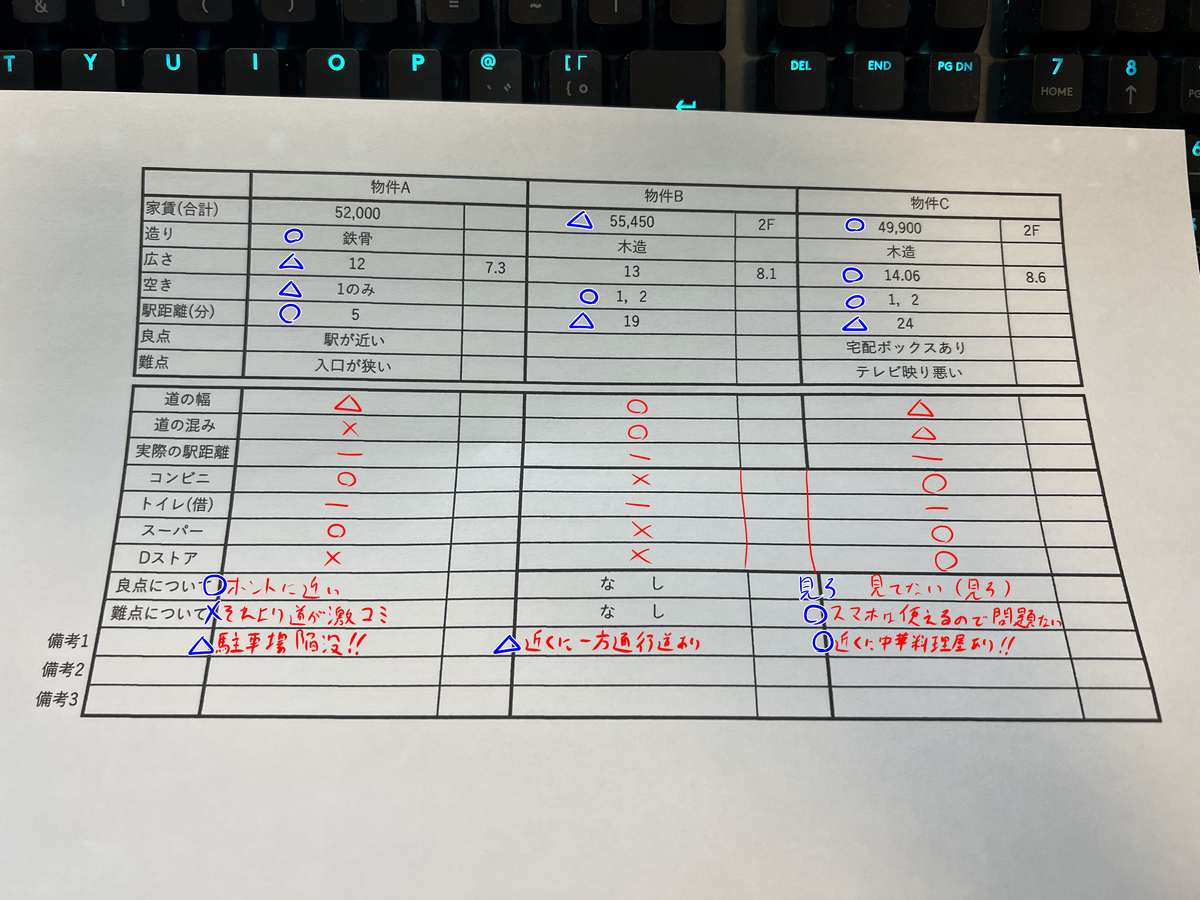 & ( ) = ~ |
T Y U I O P @ [ 「 DEL END PG DN 7 8
{ 。 HOME ↑ PG
↵
6
物件A 物件B 物件C
家賃(合計) 52,000 △ 55,450 2F ○ 49,900 2F
造り ○ 鉄骨 木造 木造
広さ △ 12 7.3 13 8.1 ○ 14.06 8.6
空き △ 1のみ ○ 1, 2 ○ 1, 2
駅距離(分) ○ 5 △ 19 △ 24
良点 駅が近い 宅配ボックスあり
難点 入口が狭い テレビ映り悪い
道の幅 △ ○ △
道の混み × ○ △
実際の駅距離 ー ー ー
コンビニ ○ × ○
トイレ(借) ー ー ー
スーパー ○ × ○
Dストア × × ○
良点について ○ ホントに近い なし 見ろ 見てない(見ろ)
難点について × それより道が激コミ なし ○ スマホは使えるので問題ない
備考1 △ 駐車場陥没!! △ 近くに一方通行道あり ○ 近くに中華料理屋あり!!
備考2
備考3